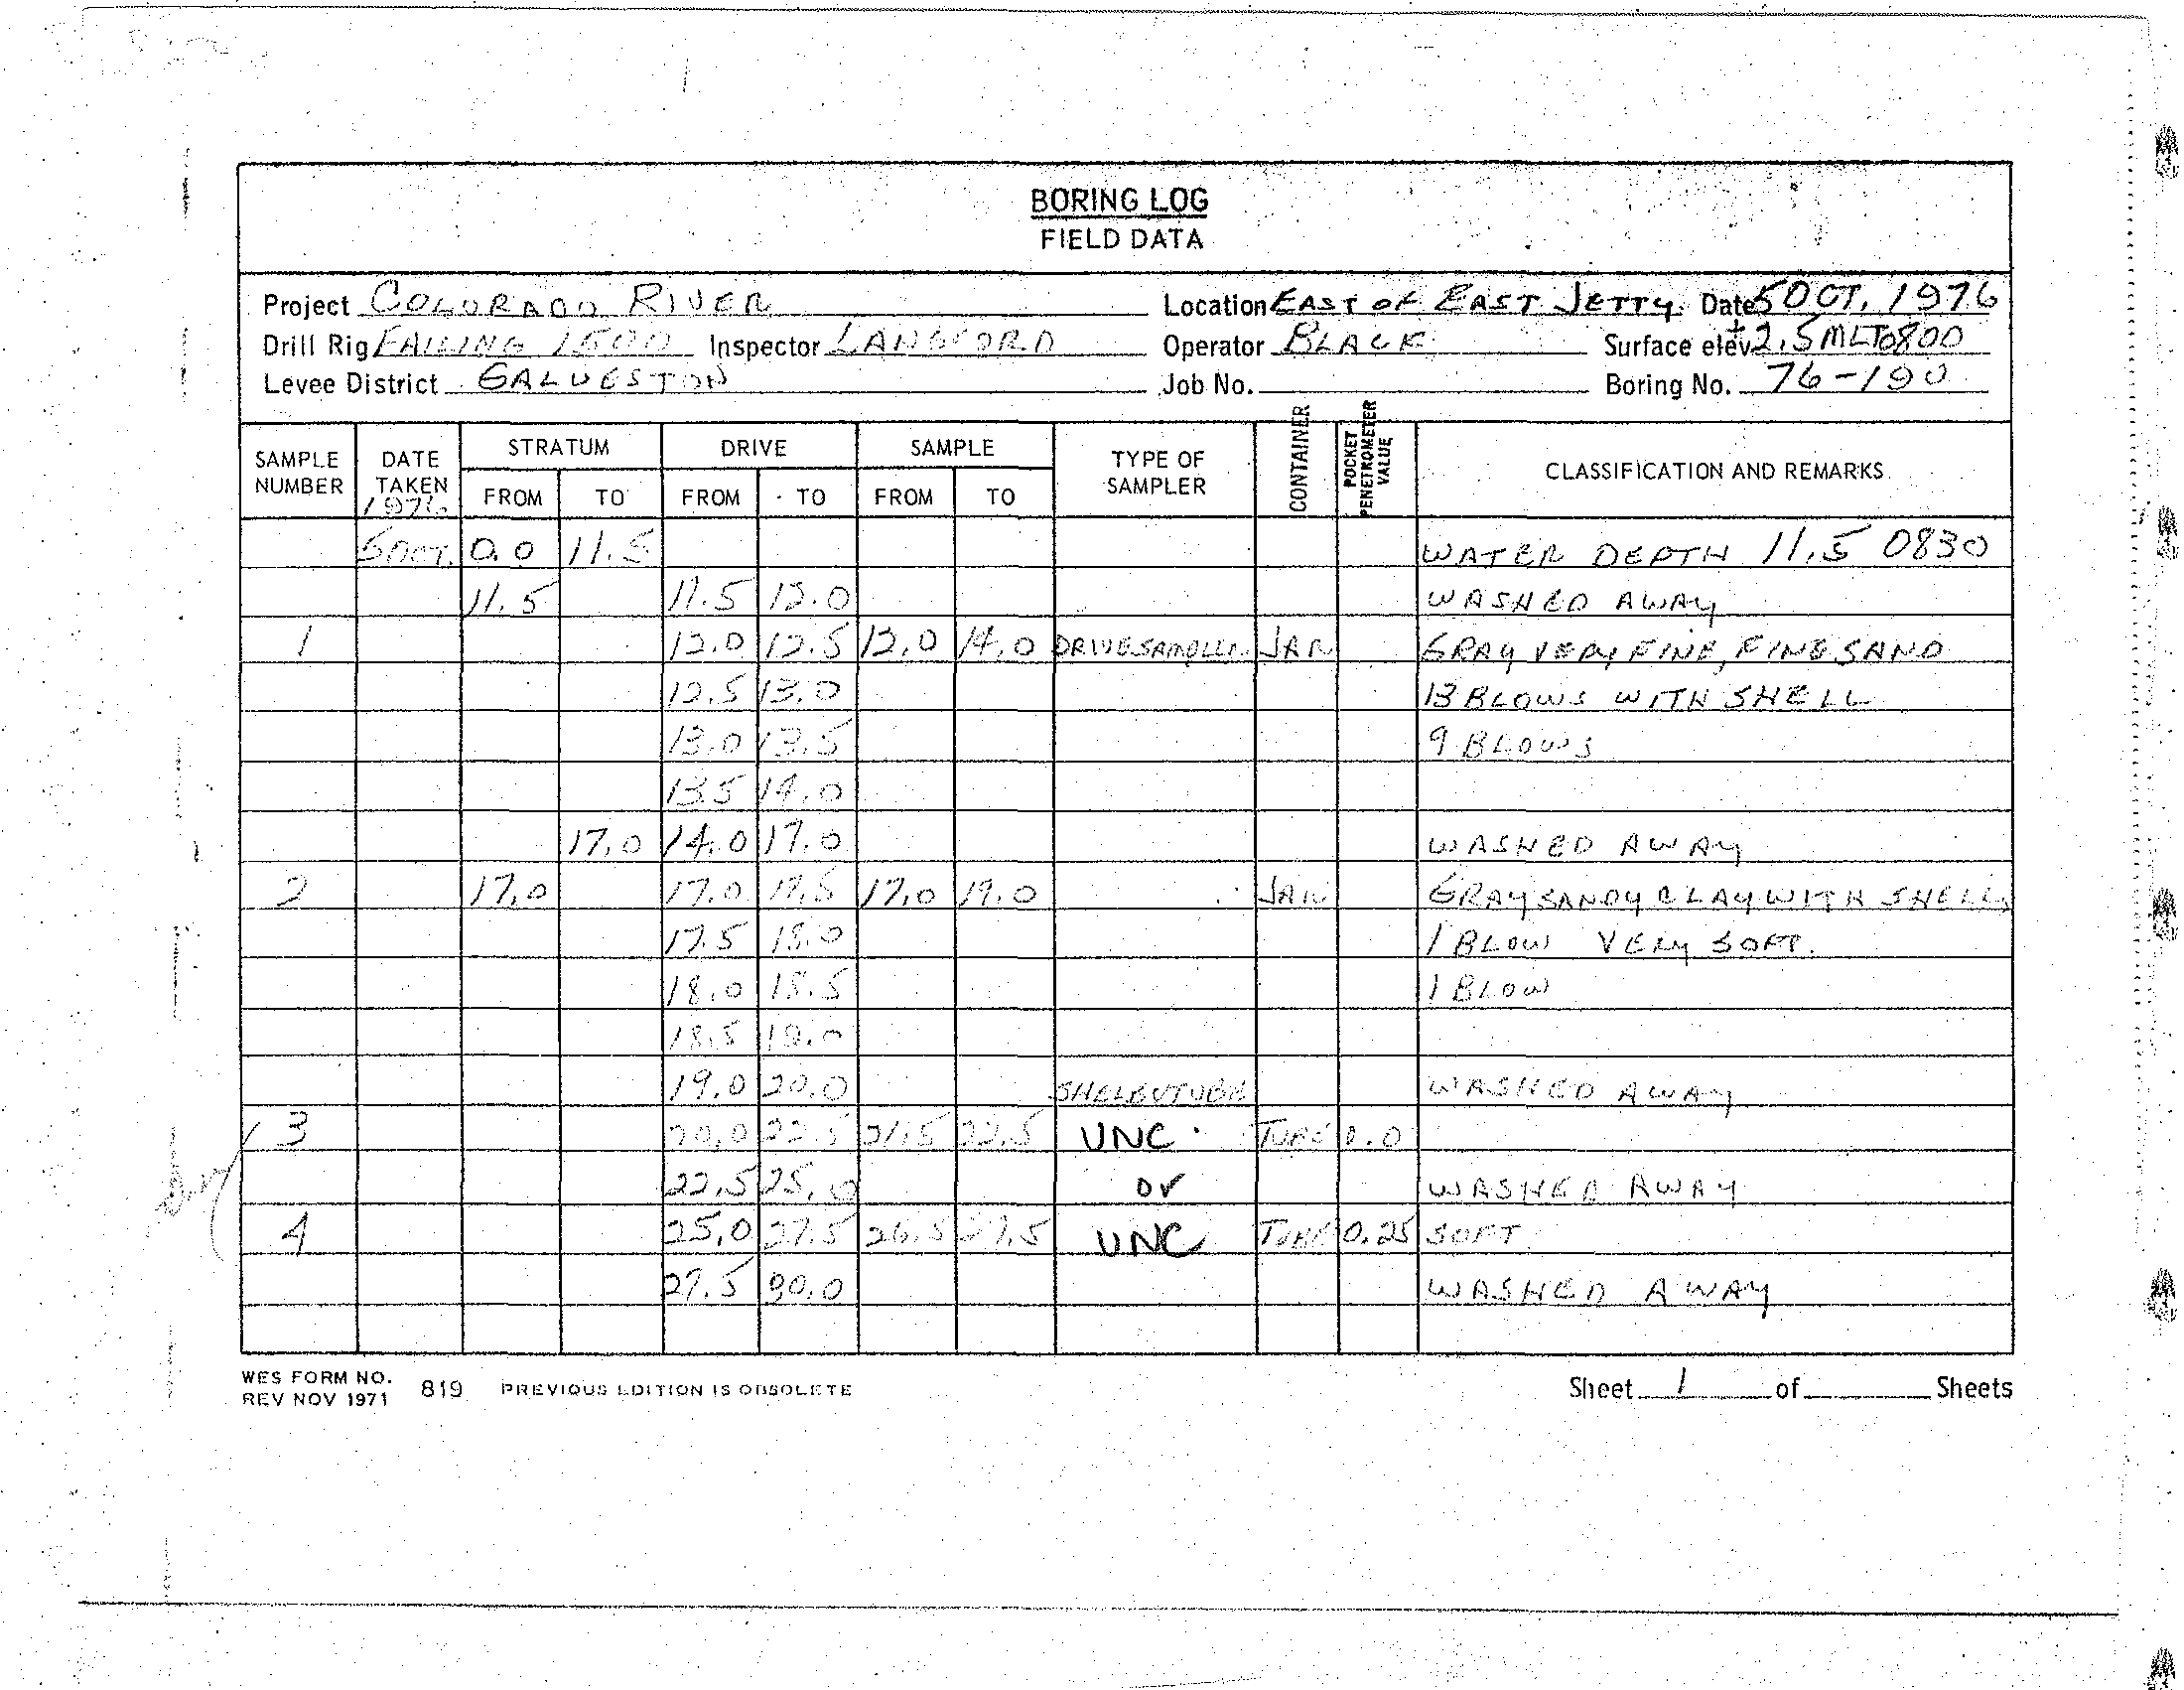 BORING LOG
FIELD DATA
Project COLORADO RIVER Location EAST OF EAST JETTY Date 5 OCT. 1976
Drill Rig FAILING 1500 Inspector LANGFORD Operator BLACK Surface elev +2.5 MLT 0800
Levee District GALVESTON Job No. Boring No. 76-190
SAMPLE NUMBER DATE TAKEN 1976 STRATUM FROM TO DRIVE FROM TO SAMPLE FROM TO TYPE OF SAMPLER CONTAINER POCKET PENETROMETER VALUE CLASSIFICATION AND REMARKS
5 OCT. 0.0 11.5 WATER DEPTH 11.5 0830
11.5 11.5 12.0 WASHED AWAY
1 12.0 12.5 12.0 14.0 DRIVE SAMPLER JAR GRAY VERY FINE, FINE SAND
12.5 13.0 13 BLOWS WITH SHELL
13.0 13.5 9 BLOWS
13.5 14.0
17.0 14.0 17.0 WASHED AWAY
2 17.0 17.0 17.5 17.0 19.0 JAR GRAY SANDY CLAY WITH SHELL,
17.5 18.0 1 BLOW VERY SOFT.
18.0 18.5 1 BLOW
18.5 19.0
19.0 20.0 SHELBY TUBE WASHED AWAY
3 20.0 22.5 21.5 22.5 UNC TUBE 0.0
22.5 25.0 or WASHED AWAY
4 25.0 27.5 26.5 27.5 UNC TUBE 0.25 SOFT
27.5 30.0 WASHED AWAY
WES FORM NO. 819 PREVIOUS EDITION IS OBSOLETE Sheet 1 of Sheets
REV NOV 1971